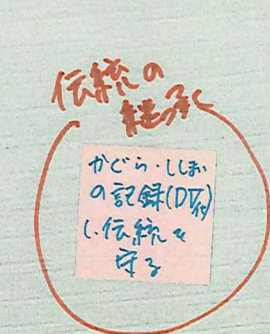 伝統の
継承
かぐら・ししまい
の記録(DVD化)
し伝統を
守る